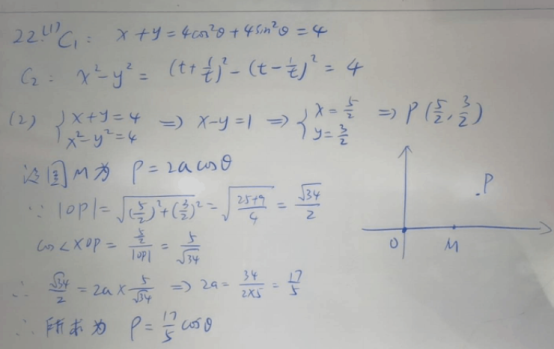 22.(1) C₁: x+y=4cos²θ+4sin²θ=4
C₂: x²-y²=(t+1/t)²-(t-1/t)²=4
(2) {x+y=4 x²-y²=4 ⇒ x-y=1 ⇒ {x=5/2 y=3/2 ⇒ P(5/2, 3/2)
设圆M为 ρ=2acosθ
∵ |OP|=√((5/2)²+(3/2)²)=√((25+9)/4)=√34/2
cos<XOP=(5/2)/|OP|=5/√34
∴ √34/2=2a×5/√34 ⇒ 2a=34/(2×5)=17/5
∴ 所求为 ρ=17/5cosθ
P
O M